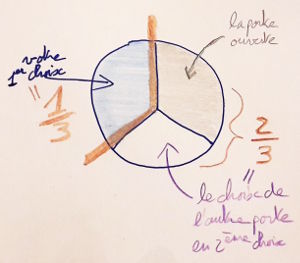 votre
1er choix
la porte
ouverte
"
1/3
2/3
"
le choix de
l'autre porte
en 2ème choix